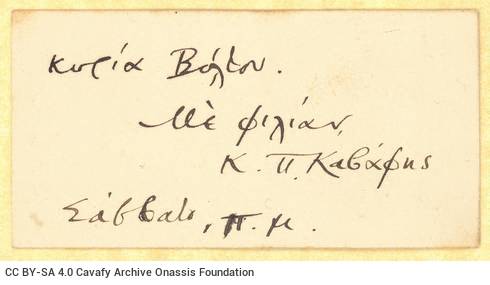 κυρία Βόλτον.
Μὲ φιλίαν,
Κ. Π. Καβάφης
Σάββατο, π. μ.
CC BY-SA 4.0 Cavafy Archive Onassis Foundation